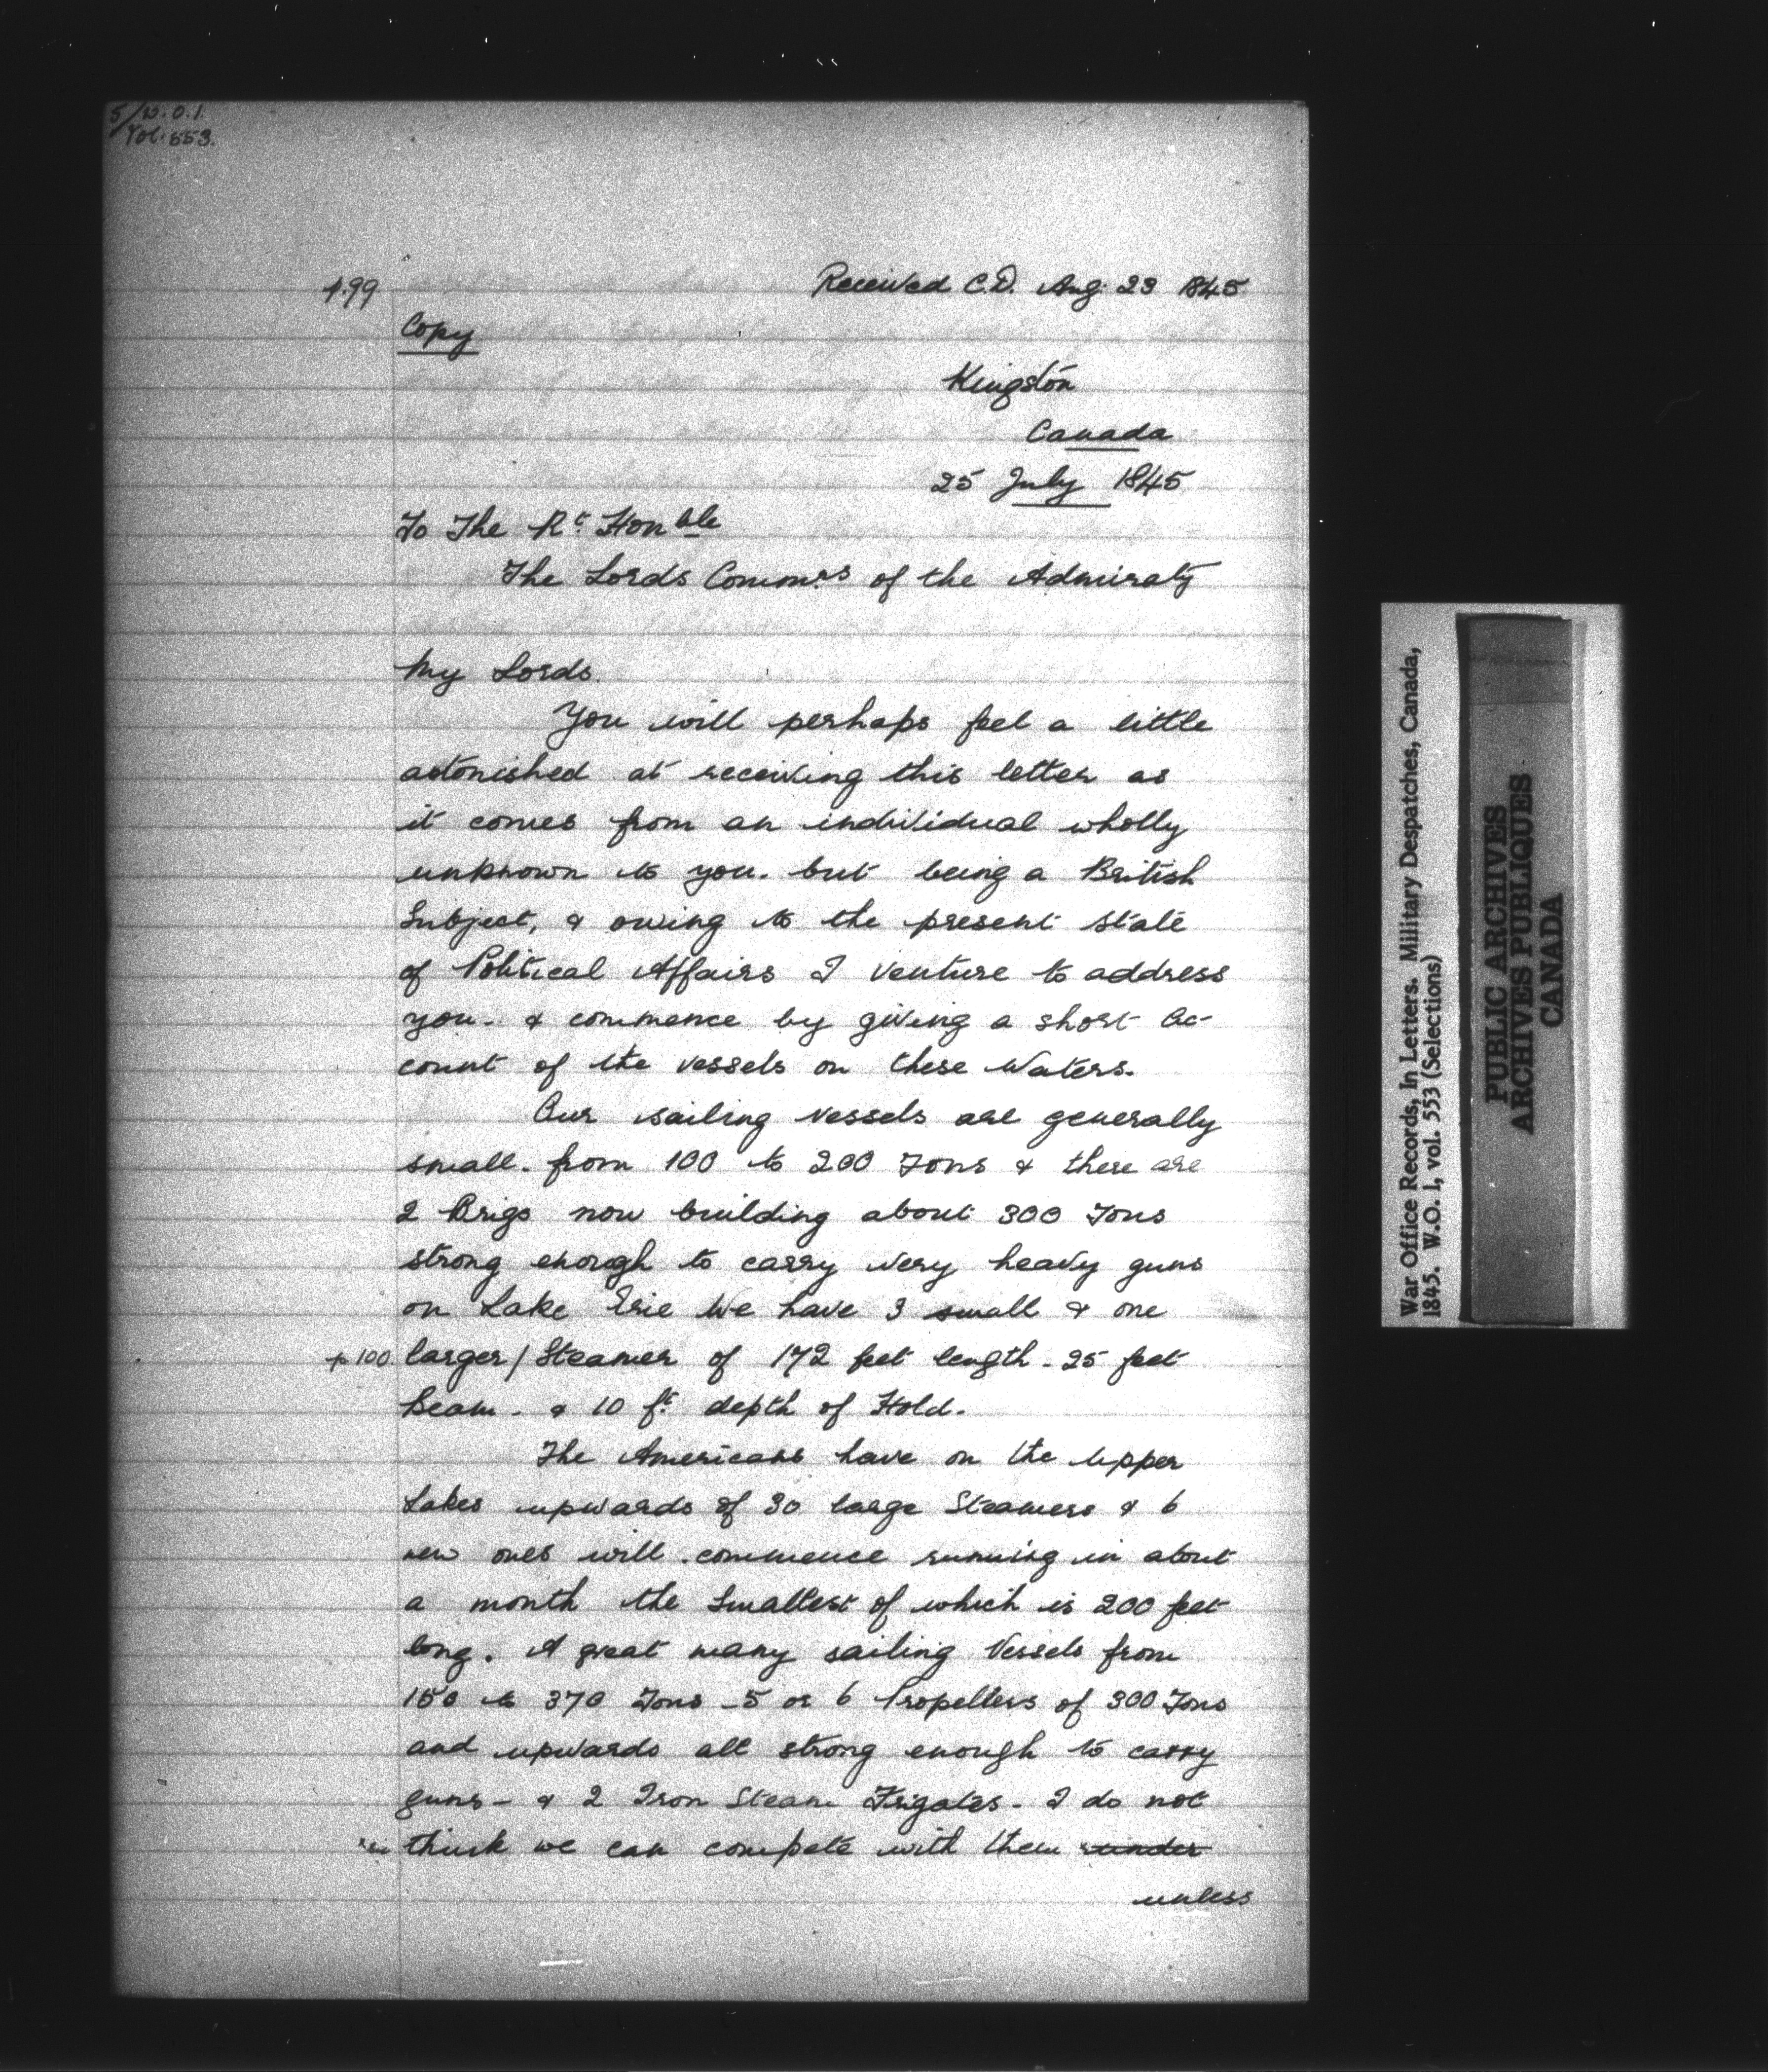 5/W.O.1.
Vol. 553.
p.99
Received C.D. Aug. 23 1845
Copy
Kingston
Canada
25 July 1845
To The Rt Honble
The Lords Commrs of the Admiralty
My Lords.
You will perhaps feel a little
astonished at receiving this letter as
it comes from an individual wholly
unknown to you. but being a British
Subject, & owing to the present state
of Political Affairs I venture to address
you - & commence by giving a short ac-
count of the vessels on these Waters.
Our sailing vessels are generally
small. from 100 to 200 Tons & there are
2 Brigs now building about 300 Tons
strong enough to carry very heavy guns
on Lake Erie We have 3 small & one
p 100 larger/Steamer of 172 feet length - 25 feet
Beam - & 10 ft depth of Hold.
The Americans have on the Upper
Lakes upwards of 30 large Steamers & 6
new ones will commence running in about
a month the Smallest of which is 200 feet
long. A great many sailing Vessels from
150 to 370 Tons - 5 or 6 Propellers of 300 Tons
and upwards all strong enough to carry
guns - & 2 Iron Steam Frigates - I do not
think we can compete with them under
unless
War Office Records, In Letters. Military Despatches, Canada,
1845. W.O. 1, vol. 553 (Selections)
PUBLIC ARCHIVES
ARCHIVES PUBLIQUES
CANADA